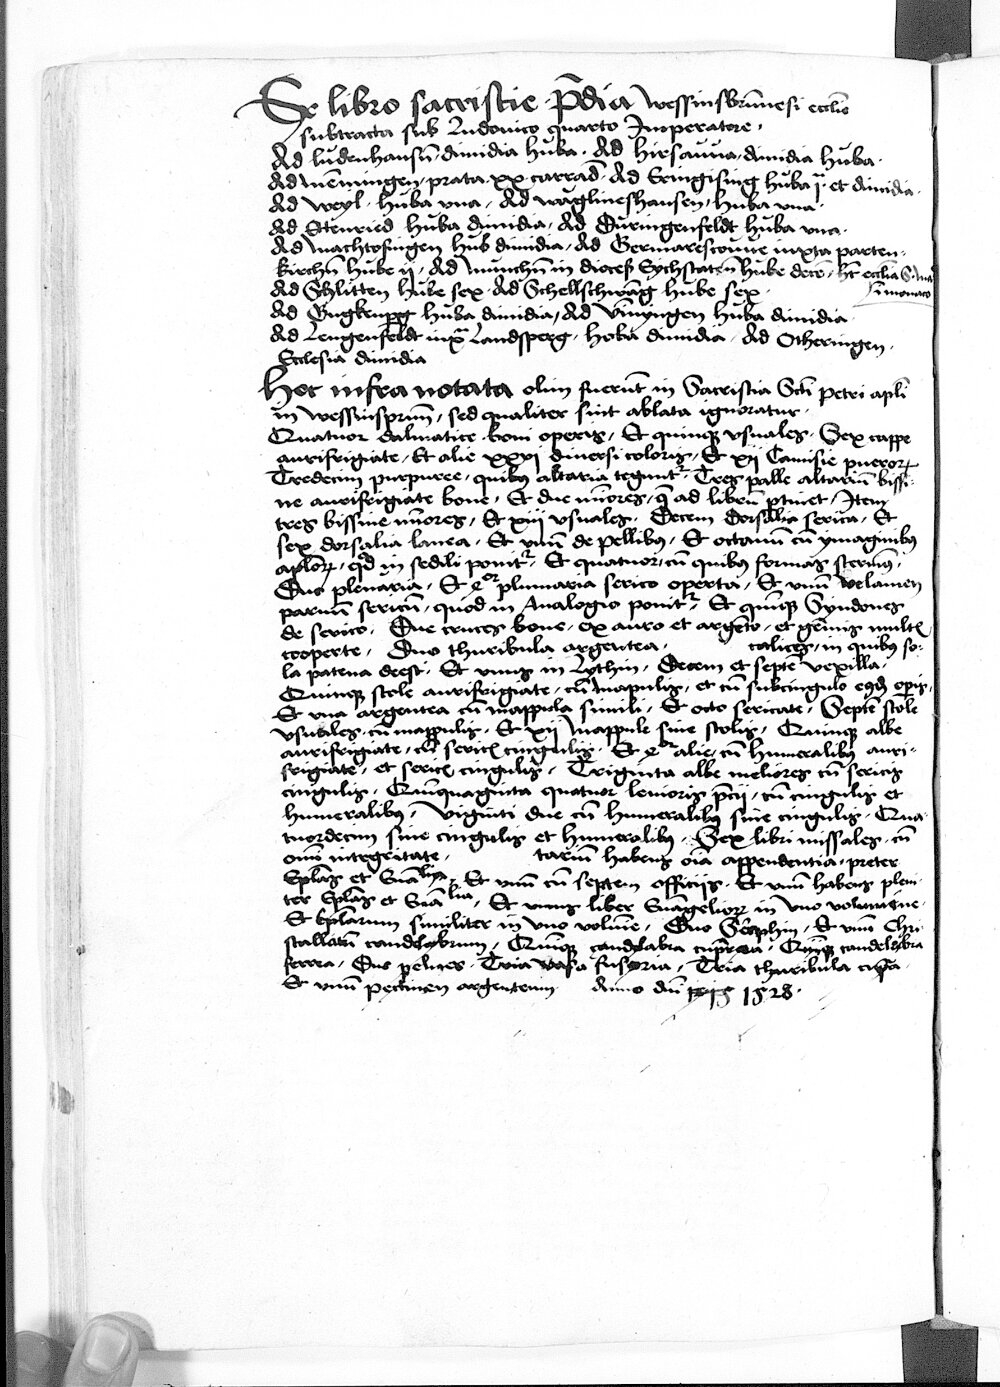 Ex libro sacristie p̄dia wessinsbrūnesi ecclīe
subtracta sub Ludouico quarto Imperatore ·
Ad ludenhausn̄ · dimidia huba · Ad hirsauua · dimidia huba ·
Ad Mēmingen · prata · xx · carrad̄ · Ad Smigising huba j̄ · et dimidia ·
Ad weyl · huba vna · Ad waglineshausen · huba vna ·
Ad Stenried huba dimidia · Ad Duringenfeldt huba vna ·
Ad Machtosingen hub dimidia · Ad Germarescouue iuxta parten-
kirchn̄ hube ij · Ad Munchn̄ in dioces̄ Eychstaten̄ hube decē · hēt ecclīa S.
in monaco
Ad Schlitten hube sex · Ad Schellschwāg hube sex ·
Ad Gugkenp̱g huba dimidia · Ad Vinyngen huba dimidia
Ad Lengenfeldt iuxª Landsperg · hoba dimidia · Ad Otheringen ·
Ecclesia dimidia
Hec infra notata olim fuerūt in Sacristia Scti petri apl̄i
in wessinsprun̄ · sed qualiter sint ablata ignoratur ·
Quatuor dalmatice boni operis · Et quinqꝫ vsuales · Sex cappe
aurifrigiate · Et alie xxxi diuersi coloris · Et xij Camisie pueroꝝ
Tredecim purpuree · quibus altaria tegunt᷑ · Tres palle altariū bissi-
ne aurifrigiate bone · Et due mīores · q̄ ad librū ptinet · Item
tres bissine mīores · Et xiij vsuales · Decem Dorsalia serica · Et
sex dorsalia lanea · Et vnū de pellibꝰ · Et octauū cū ymaginibꝰ
apl̄oꝝ · qd̄ in sedili ponit᷑ · Et quatuor · cū quibus formas sternimꝰ ·
Duo plenaria · Et qᵒʳ plumaria serico operta · Et vnū velamen
paruū sericū · quod in Analogio ponit᷑ · Et quinqꝫ Syndones
de serico · Due cruces bone · ex auro et argēto · et gēmis mult
cooperte · Duo thuribula argentea · calices · in quibus so-
la patena deest · Et vnus in Lythin · Decem et septē vexilla ·
Quinqꝫ stole aurifrigiate · cū Mapulis · et cū subcingulo eiꝰd̄ op̱is ·
Et vna argentea cū mappula simili · Et octo sericate · Septē stole
vsuales · cū mappulis · Et xij Mappule sine stolis · Quinqꝫ albe
aurifrigiate · cū seric cingulis · Et qᵒʳ alie · cū humeralibus auri-
frigiate · et seric cingulis · Triginta albe meliores cū sericis
cingulis · Quīquaginta quatuor leuioris p̄cij · cū cingulis et
humeralibꝰ · Viginti due cū humeralibꝰ sine cingulis · Qua-
tuordecim sine cingulis et humeralibꝰ · Sex libri missales · cū
omī integritate · tariū habens oīa appendentia · preter
Epl̄as et Euāˡⁱᵃ · Et vnū cū septem officijs · Et vnū habens pleni-
ter Epl̄as et Euāˡⁱᵃ · Et vnus liber Euāgelioꝝ in vno volumine ·
Et Epl̄arum similiter in vno volūīe · Duo Seraphin · Et vnū Chri-
stallatū candelabrum · Quinqꝫ candelabra cuprea · Quinqꝫ candelabra
ferrea · Due pelues · Tria vasa fusoria · Tria thuribula cup̱a ·
Et vnū pectinen argenteum Anno dn̄i 1528 ·